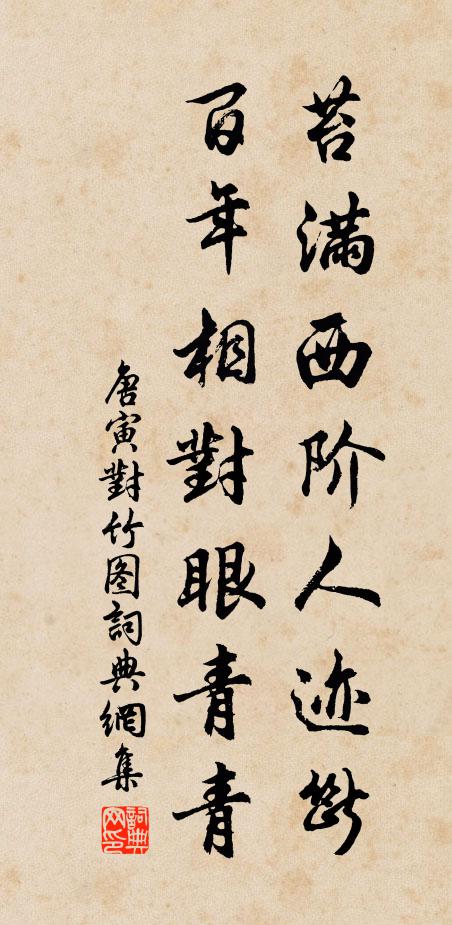 苔满西阶人迹断
百年相對眼青青
唐寅對竹图詞典網集
詞典
网印